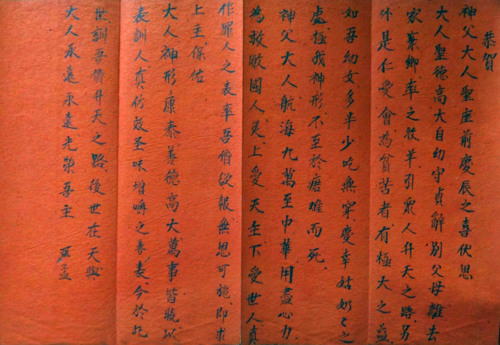 恭賀
神父大人聖座前慶辰之喜伏思
大人聖德高大自幼守貞辭別父母離去
家業鄉率之牧羊引眾人升天之路另
外是仁愛會為貧苦者有極大之益
如吾幼女多半少吃無穿慶幸姑奶々之
處極我神形不至於 難而死
神父大人航海九萬至中華用盡心力
為救敝國人民上受天主下受世人真
作罪人之表率吾儕欲報無恩可施即求
上主保佑
大人神形康泰善德高大萬事皆 以
表訓人真仿效圣味增爵之善表今於此
世訓吾儕升天之路後世在天與
大人永遠永遠光榮吾主